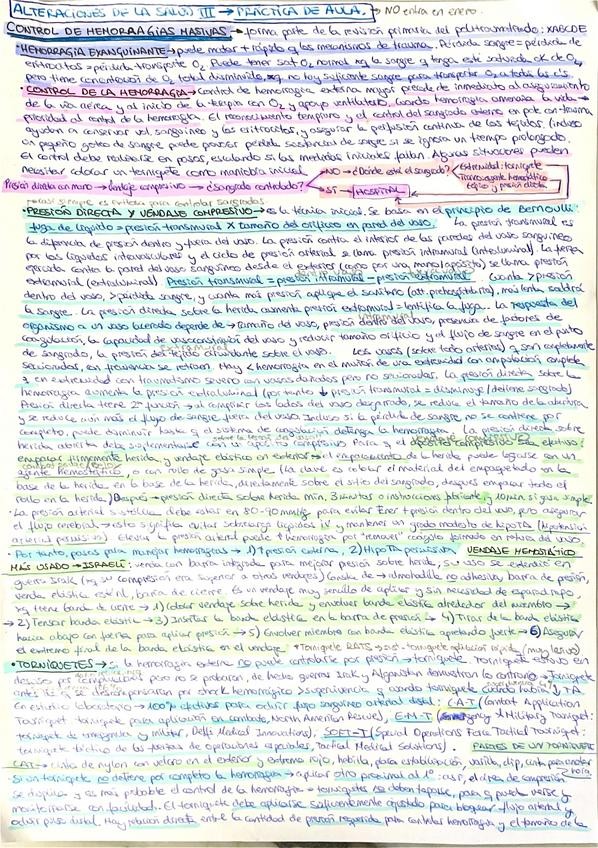 ALTERACIONES DE LA SALUD III → PRÁCTICA DE AULA. → NO entra en enero.
CONTROL DE HEMORRAGIAS MASIVAS → forma parte de la revisión primaria del politraumatizado: XABCDE
• HEMORRAGIA EXANGUINANTE → puede matar + rápido q los mecanismos de trauma. Pérdida sangre = pérdida de
eritrocitos = pérdida transporte O₂. Puede tener sat O₂ normal xq la sangre q tenga está saturada ok de O₂,
pero tiene concentración de O₂ total disminuida, xq no hay suficiente sangre para transportar O₂ a todas las c's.
• CONTROL DE LA HEMORRAGIA → Control de hemorragia externa mayor precede de inmediato al aseguramiento
de la vía aérea y al inicio de la terapia con O₂ y apoyo ventilatorio. Cuando hemorragia amenaza la vida →
prioridad al control de la hemorragia. El reconocimiento temprano y el control del sangrado externo en pat con trauma
ayudan a conservar vol sanguíneo y los eritrocitos, y asegurar la perfusión continua de los tejidos. Incluso
un pequeño goteo de sangre puede provocar pérdida sustancial de sangre si se ignora un tiempo prolongado.
El control debe realizarse en pasos, escalando si las medidas iniciales fallan. Algunas situaciones pueden
necesitar colocar un torniquete como maniobra inicial.
Presión directa con mano → vendaje compresivo → ¿sangrado controlado? NO → ¿Dónde está el sangrado? Extremidad: torniquete
SÍ → HOSPITAL tópico y presión directa
→ casi siempre es exitosa para controlar sangrados
• PRESIÓN DIRECTA Y VENDAJE COMPRESIVO → es la técnica inicial. Se basa en el principio de Bernoulli:
fuga de líquido = presión transmural x tamaño del orificio en pared del vaso. La presión transmural es
la diferencia de presión dentro y fuera del vaso. La presión contra el interior de las paredes del vaso sanguíneo
por los líquidos intravasculares y el ciclo de presión arterial se llama presión intramural (intraluminal). La fuerza
ejercida contra la pared del vaso sanguíneo desde el exterior (como por una mano/apósito) se llama presión
extramural (extraluminal). Presión transmural = presión intramural − presión extramural. Cuanta > presión
dentro del vaso, > pérdida sangre, y cuanta más presión aplique el sanitario (at. prehospitalaria), más lenta saldrá
la sangre. La presión directa sobre la herida aumenta presión extramural = lentifica la fuga. La respuesta del
organismo a un vaso lacerado depende de → tamaño del vaso, presión dentro del vaso, presencia de factores de
coagulación, la capacidad de vasoconstricción del vaso y reducir tamaño orificio y el flujo de sangre en el punto
de sangrado, la presión del tejido circundante sobre el vaso. Los vasos (sobre todo arterias) q son completamente
seccionados, con frecuencia se retraen. Hay < hemorragia en el muñón de una extremidad con amputación completa
q en extremidad con traumatismo severo con vasos dañados pero no seccionados. La presión directa sobre la
hemorragia aumenta la presión extraluminal (por tanto ↓ presión transmural = disminuye/detiene sangrado)
Presión directa tiene 2ª función → al comprimir los lados del vaso desgarrado, se reduce el tamaño de la abertura
y se reduce aún más el flujo de sangre fuera del vaso. Incluso si la pérdida de sangre no se contiene por
completo, puede disminuir hasta q el sistema de coagulación detenga la hemorragia. La presión directa sobre
herida abierta
empacar firmemente herida, y vendaje elástico en exterior → el empacamiento de herida puede lograrse con un
agente hemostático, o con rollo de gasa simple. (La clave es colocar el material del empaquetado en la
base de la herida en la base de la herida, directamente sobre el sitio del sangrado, después empacar todo el
rollo en la herida.) Después → presión directa sobre herida mín. 3 minutos o instrucciones fabricante, y 10 min si gasa simple
• La presión arterial sistólica debe estar en 80-90 mmHg para evitar presión dentro del vaso, pero asegurar
el flujo cerebral → esto significa evitar sobrecarga líquidos IV y mantener un grado modesto de hipoTA (Hipotensión
arterial permisiva). Elevar la presión arterial puede ↑ hemorragia por "remover" coágulo formado en rotura del vaso.
• Por tanto, pasos para manejar hemorragias → 1) ↑ presión externa, 2) HipoTA permisiva. VENDAJE HEMOSTÁTICO
MÁS USADO → ISRAELÍ: venda con barra integrada para mejorar presión sobre herida, su uso se extendió en
guerra Irak (xq su compresión era superior a otras vendajes) Consta de → almohadilla no adhesiva, barra de presión,
venda elástica estéril, barra de cierre. Es un vendaje muy sencillo de aplicar y sin necesidad de esparadrapo,
xq tiene barra de cierre → 1) Colocar vendaje sobre herida y envolver banda elástica alrededor del miembro →
→ 2) Tensar banda elástica → 3) Insertar la banda elástica en la barra de presión → 4) Tirar de la banda elástica
hacia abajo con fuerza para aplicar presión → 5) Envolver miembro con banda elástica apretando fuerte → 6) Asegurar
el extremo final de la banda elástica en el vendaje. *Torniquete RATS → torniquete aplicación rápida (muy lesivo)
• TORNIQUETES → si la hemorragia externa no puede controlarse por presión → torniquete. Torniquete estuvo en
desuso por complicaciones pero no se probaron, de hecho guerras Irak y Afganistán demuestran lo contrario → Torniquete
antes de q descompensaran por shock hemorrágico > supervivencia q cuando torniquete cuando había ↓ TA.
En estudio laboratorio → 100% efectivos para ocluir flujo sanguíneo arterial distal: C-A-T (Combat Application
Tourniquet: torniquete para aplicación en combate, North American Rescue), E-M-T (Emergency & Military Tourniquet:
torniquete de emergencia y militar, Delfi Medical Innovations), SOFT-T (Special Operations Force Tactical Tourniquet:
torniquete táctico de las fuerzas de operaciones especiales, Tactical Medical Solutions). PARTES DE UN TORNIQUETE
CAT → cinta de nylon con velcro en el exterior y extremo rojo, hebilla, para estabilización, varilla, clip, cinta para anotar hora.
Si un torniquete no detiene por completo la hemorragia → aplicar otro proximal al 1º: así, el área de compresión
se duplica y es más probable el control de la hemorragia → torniquetes no deben taparse, para q puede verse y
monitorizarse con facilidad. El torniquete debe aplicarse suficientemente ajustado para bloquear flujo arterial y
ocluir pulso distal. Hay relación directa entre la cantidad de presión requerida para controlar hemorragia y el tamaño de la